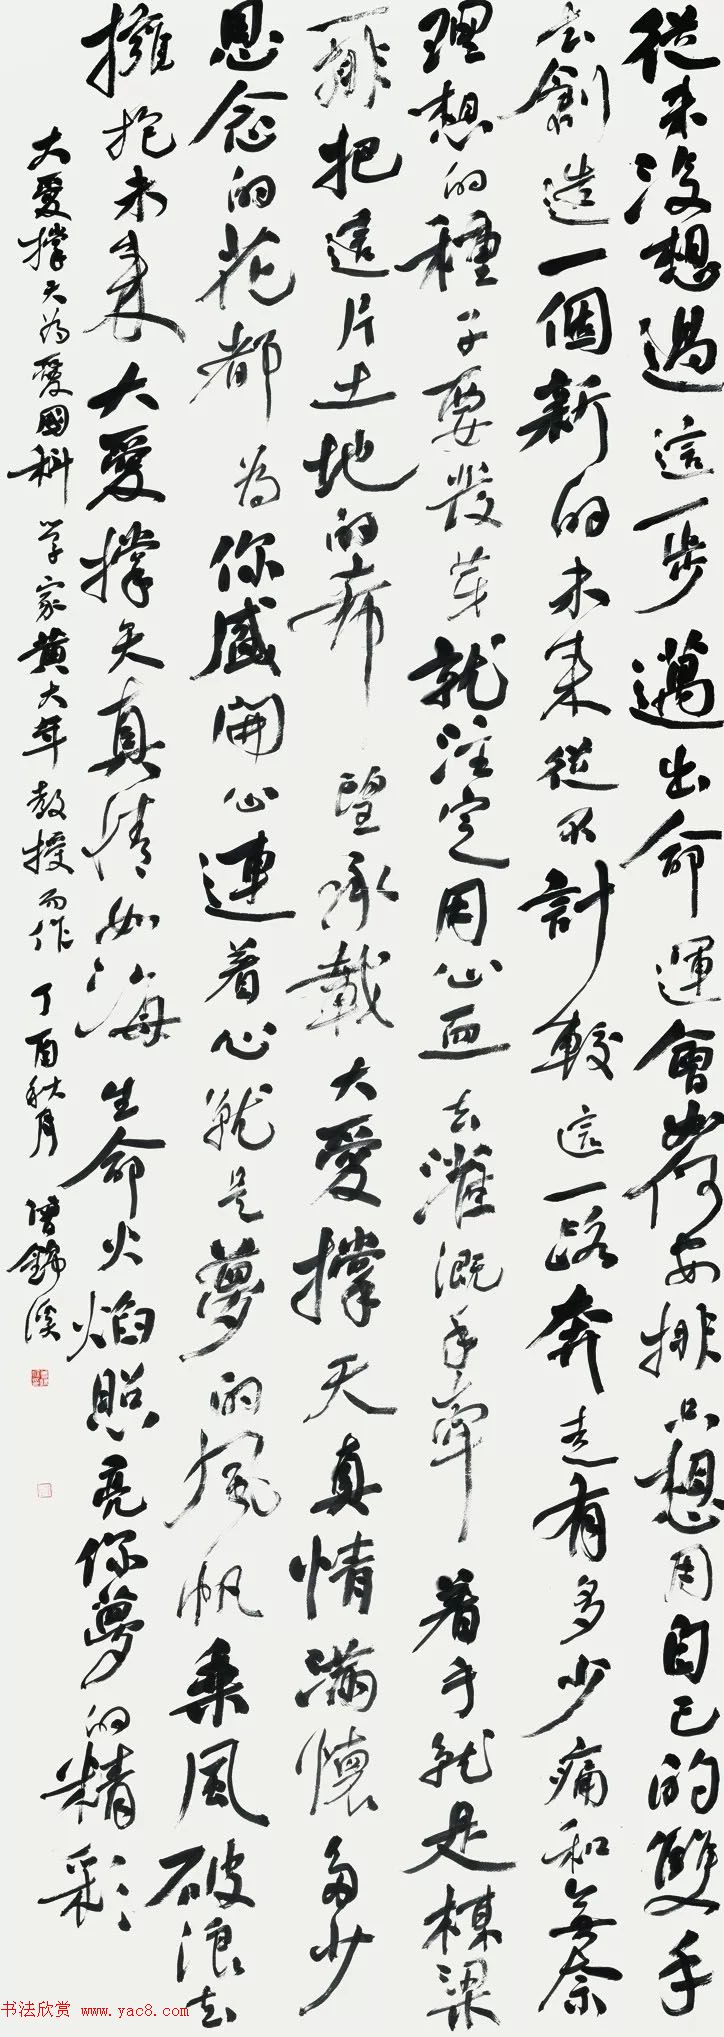 從未沒想過這一步邁出命運會如何安排只想用自己的雙手
去創造一個新的未來從不計較這一路奔走有多少痛和無奈
理想的種子要發芽就注定用心血去灌溉手牽着手就是棟梁
一排把這片土地的希望承載大愛撐天真情滿懷多少
思念的花都為你盛開心連着心就是夢的風帆乘風破浪去
擁抱未來大愛撐天真情如海生命火焰照亮你夢的精彩
大愛撐天為愛國科学家黃大年教授而作丁酉秋月曾錦溪
书法欣赏 www.yac8.com